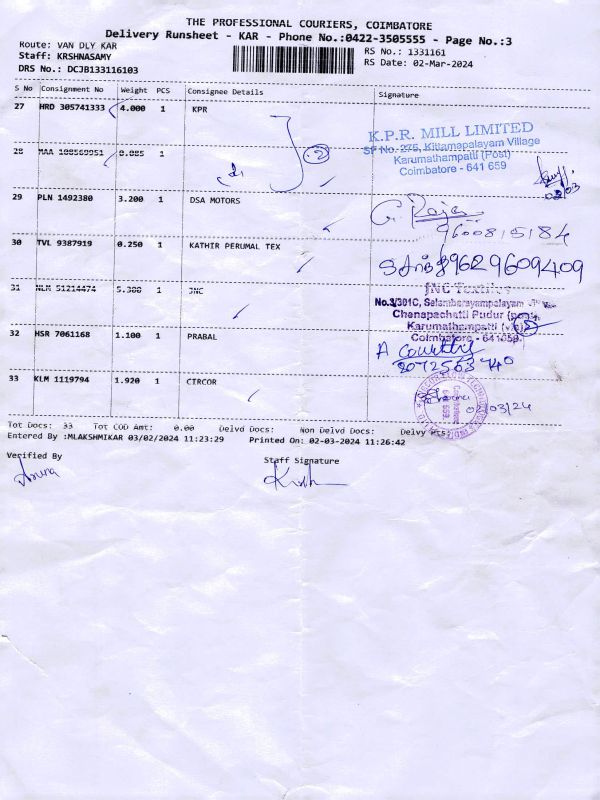 THE PROFESSIONAL COURIERS, COIMBATORE
Delivery Runsheet - KAR - Phone No.:0422-3505555 - Page No.:3
Route: VAN DLY KAR
RS No.: 1331161
Staff: KRSHNASAMY
RS Date: 02-Mar-2024
DRS No.: DCJB133116103
S No Consignment No Weight PCS Consignee Details Signature
27 HRD 305741333 4.000 1 KPR
K.P.R. MILL LIMITED
SF No. 275, Kittampalayam Village
Karumathampatti (Post)
Coimbatore - 641 659
28 MAA 108569951 0.085 1
2
02/03
29 PLN 1492380 3.200 1 DSA MOTORS
G. Raja
9600815184
30 TVL 9387919 0.250 1 KATHIR PERUMAL TEX
9629609409
31 NLM 51214474 5.300 1 JNC
JNC Textiles
No.3/301C, Selambarayampalayam
Chenapachatti Pudur
Karumathampatti
Coimbatore - 641659.
32 HSR 7061168 1.100 1 PRABAL
A
33 KLM 1119794 1.920 1 CTRCOR
02/03/24
Tot Docs: 33 Tot COD Amt: 0.00 Delvd Docs: Non Delvd Docs: Delvy Pts:
Entered By :MLAKSHMIKAR 03/02/2024 11:23:29 Printed On: 02-03-2024 11:26:42
Verified By
Staff Signature
Aruna